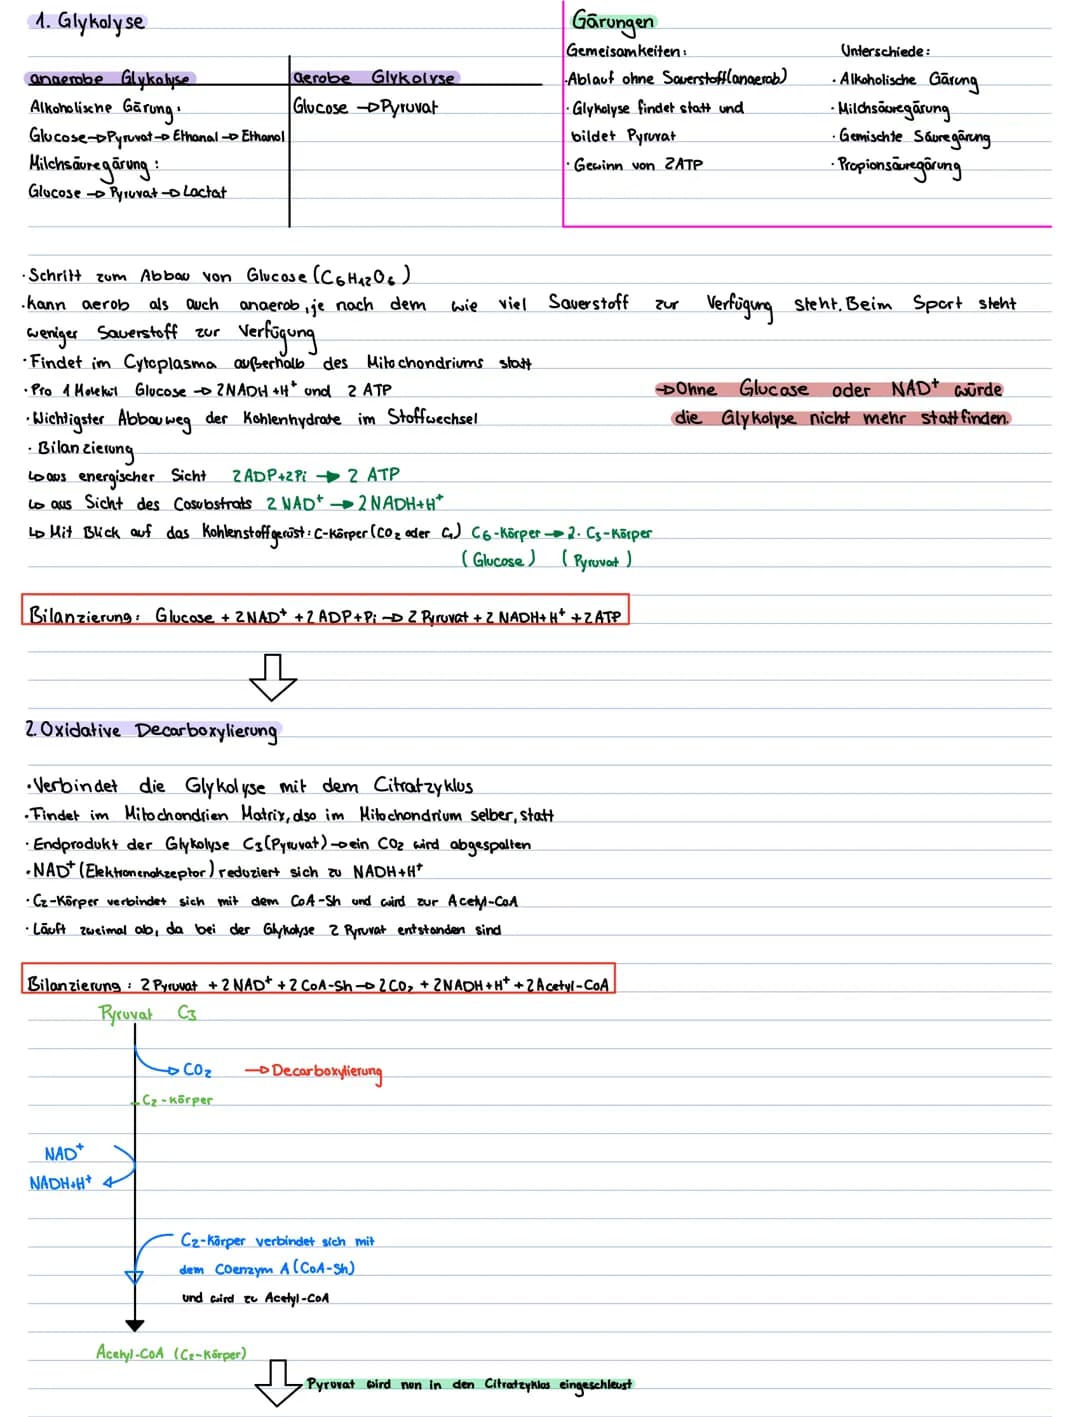 1. Glykolyse
anaerobe Glykolyse
Alkoholische Gärung:
Glucose→Pyruvat→Ethanal→Ethanol
Milchsäuregärung:
Glucose→Pyruvat→Lactat
aerobe Glykolyse
Glucose→Pyruvat
Gärungen
Gemeisamkeiten:
·Ablauf ohne Sauerstoff(anaerob)
·Glykolyse findet statt und
bildet Pyruvat
·Gewinn von 2ATP
Unterschiede:
·Alkoholische Gärung
·Milchsäuregärung
·Gemischte Säuregärung
·Propionsäuregärung
·Schritt zum Abbau von Glucose(C₆H₁₂O₆)
·kann aerob als auch anaerob, je nach dem wie viel Sauerstoff zur Verfügung steht. Beim Sport steht
weniger Sauerstoff zur Verfügung
·Findet im Cytoplasma außerhalb des Mitochondriums statt
·Pro 1 Molekül Glucose → 2NADH+H⁺ und 2 ATP
→Ohne Glucose oder NAD⁺ würde
die Glykolyse nicht mehr stattfinden.
·Wichtigster Abbauweg der Kohlenhydrate im Stoffwechsel
·Bilanzierung
↳aus energischer Sicht 2ADP+2Pi → 2 ATP
↳aus Sicht des Cosubstrats 2 NAD⁺ → 2NADH+H⁺
↳Mit Blick auf das Kohlenstoffgerüst: C-Körper(CO₂ oder C₄) C6-Körper→2· C₃-Körper
(Glucose) (Pyruvat)
Bilanzierung: Glucose + 2NAD⁺ +2 ADP+Pi → 2 Pyruvat + 2 NADH+H⁺ +2ATP
2. Oxidative Decarboxylierung
·Verbindet die Glykolyse mit dem Citratzyklus
·Findet im Mitochondrien Matrix, also im Mitochondrium selber, statt
·Endprodukt der Glykolyse C₃(Pyruvat)→ein CO₂ wird abgespalten
·NAD⁺(Elektronenakzeptor)reduziert sich zu NADH+H⁺
·C₂-Körper verbindet sich mit dem CoA-Sh und wird zur Acetyl-CoA
·Läuft zweimal ab, da bei der Glykolyse 2 Pyruvat entstanden sind
Bilanzierung: 2 Pyruvat + 2 NAD⁺ + 2 CoA-Sh→2CO₂ + 2NADH+H⁺ +2Acetyl-CoA
Pyruvat C₃
CO₂ →Decarboxylierung
C₂-Körper
NAD⁺
NADH+H⁺
C₂-Körper verbindet sich mit
dem Coenzym A(CoA-Sh)
und wird zu Acetyl-CoA
Acetyl-CoA (C₂-Körper)
Pyruvat wird nun in den Citratzyklus eingeschleust